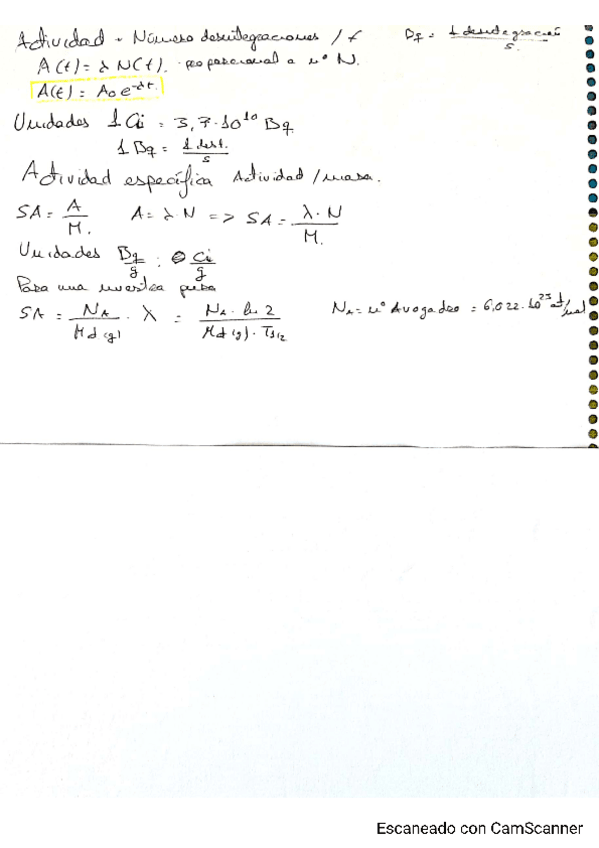 Actividad - Número desintegraciones / t
Bq = 1 desintegración / s
A(t) = λ N(t). proporcional a nº N.
A(t) = A₀ e^-λt.
Unidades 1 Ci = 3,7·10^10 Bq
1 Bq = 1 dest. / s
Actividad específica Actividad / masa.
SA = A / M. A = λ·N => SA = λ·N / M.
Unidades Bq / g : Ci / g
Para una muestra pura
SA = NA / Md (g) · λ = NA · ln 2 / Md (g) · T1/2 NA = nº Avogadro = 6,022·10^23 at/mol
Escaneado con CamScanner